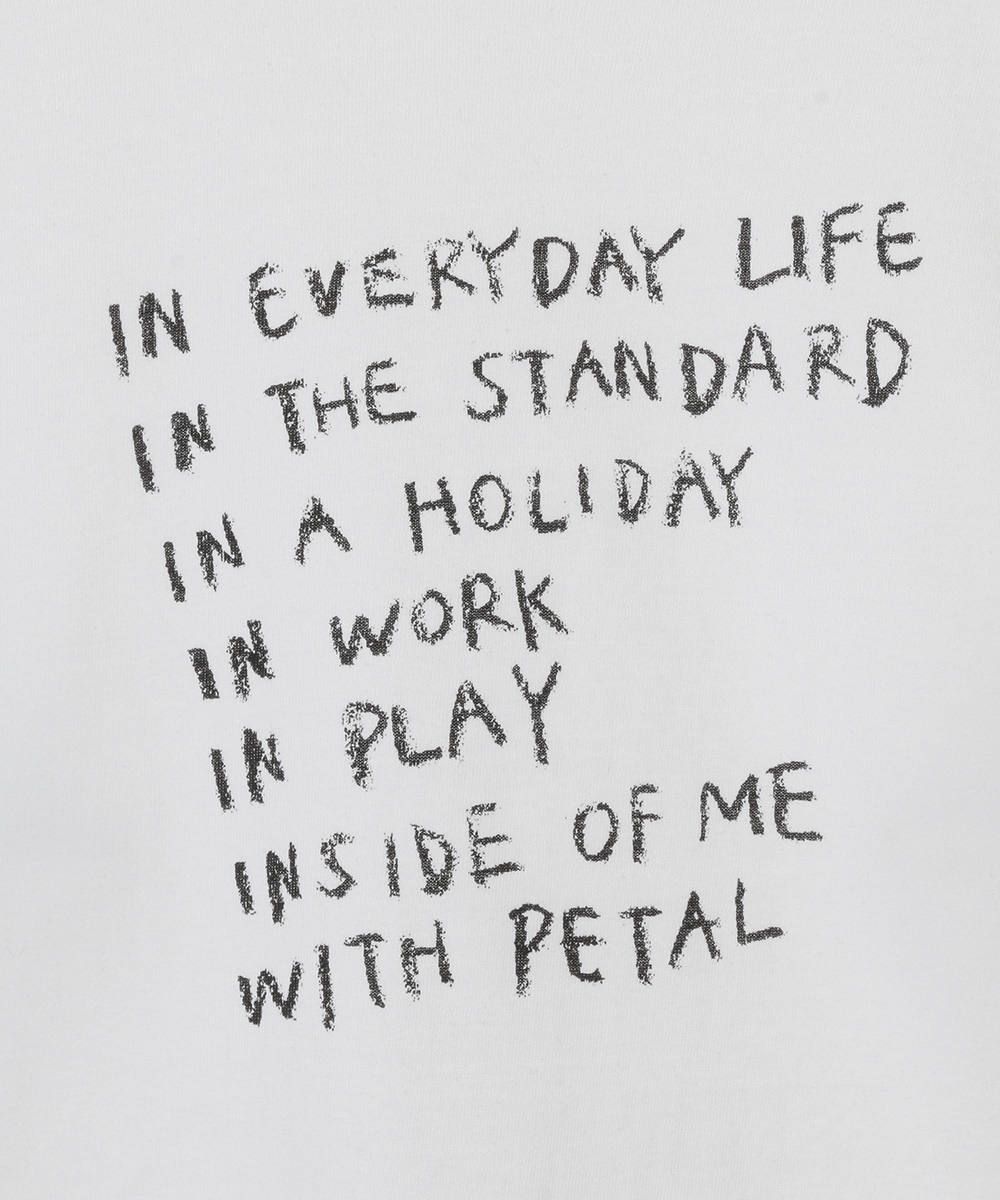 IN EVERYDAY LIFE
IN THE STANDARD
IN A HOLIDAY
IN WORK
IN PLAY
INSIDE OF ME
WITH PETAL